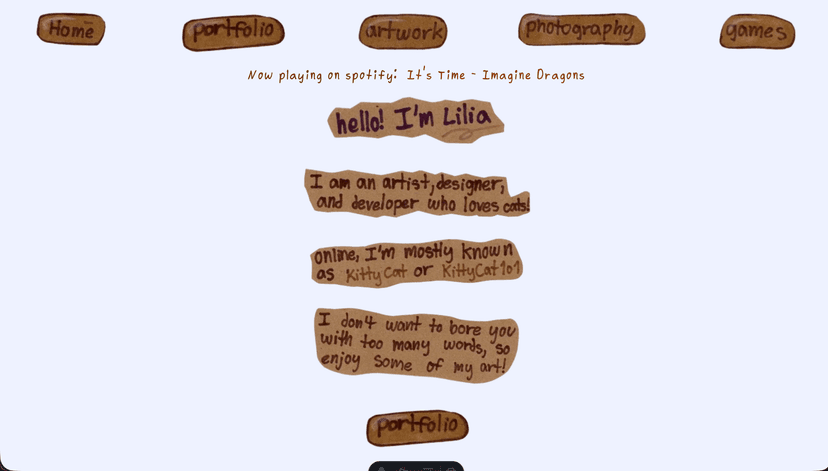 Home portfolio artwork photography games
Now playing on spotify: It's Time - Imagine Dragons
hello! I'm Lilia
I am an artist, designer,
and developer who loves cats!
online, I'm mostly known
as KittyCat or KittyCat101
I don't want to bore you
with too many words, so
enjoy some of my art!
portfolio